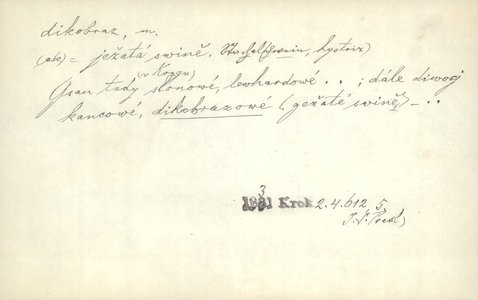 dikobraz, m.
(ak) = ježatá swině, Stachelschwein, hystrix)
(w Kongu)
Gsau tudy slonowé, lewhardowé . . ; dále diwocj
kancowé, dikobrazowé (gežaté swině) – . .
3
1831 Krok 2. 4. 612 5
J. S. Presl